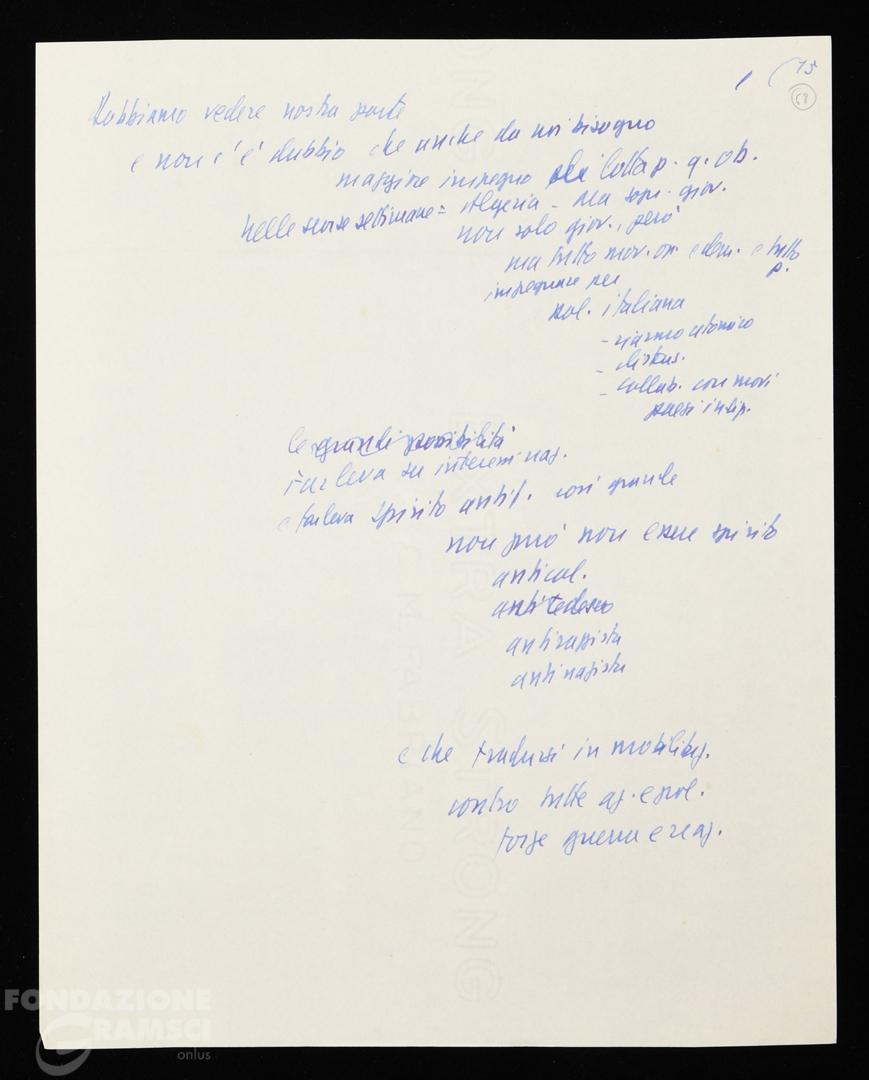 15
68
Dobbiamo vedere nostra parte
e non c'è dubbio che anche da noi bisogno
maggiore impegno lotta p. q. ob.
nelle scorse settimane = Algeria - ma sopr. giov.
non solo giov., però
ma tutto mov. op. e dem. e tutto
p.
impegnare per
pol. italiana
- riarmo atomico
- distens.
- collab. con nuovi
paesi indip.
le grandi possibilità
far leva su interessi naz.
e far leva spirito antif. così grande
non può non essere spirito
anticol.
antitedesco
antirazzista
antinazista
e che tradursi in mobilitaz.
contro tutte az. e pol.
forze guerra e reaz.
EXTRA STRONG
C.M.FABRIANO
FONDAZIONE
GRAMSCI
onlus